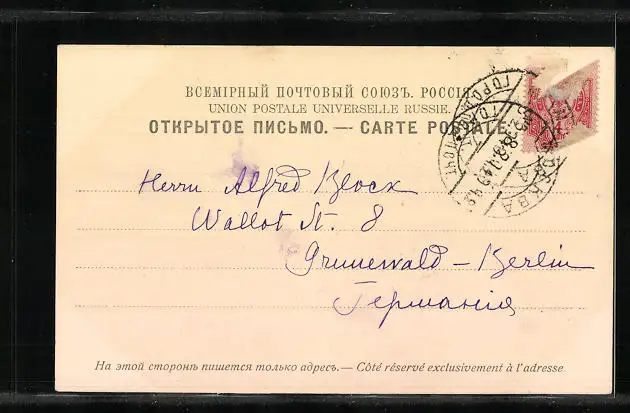 ВСЕМІРНЫЙ ПОЧТОВЫЙ СОЮЗЪ. РОССІЯ
UNION POSTALE UNIVERSELLE RUSSIE.
ОТКРЫТОЕ ПИСЬМО. — CARTE POSTALE.
Herrn Alfred Block
Wallot St. 8
Grunewald – Berlin
Германія
На этой сторонѣ пишется только адресъ.— Côté réservé exclusivement à l'adresse